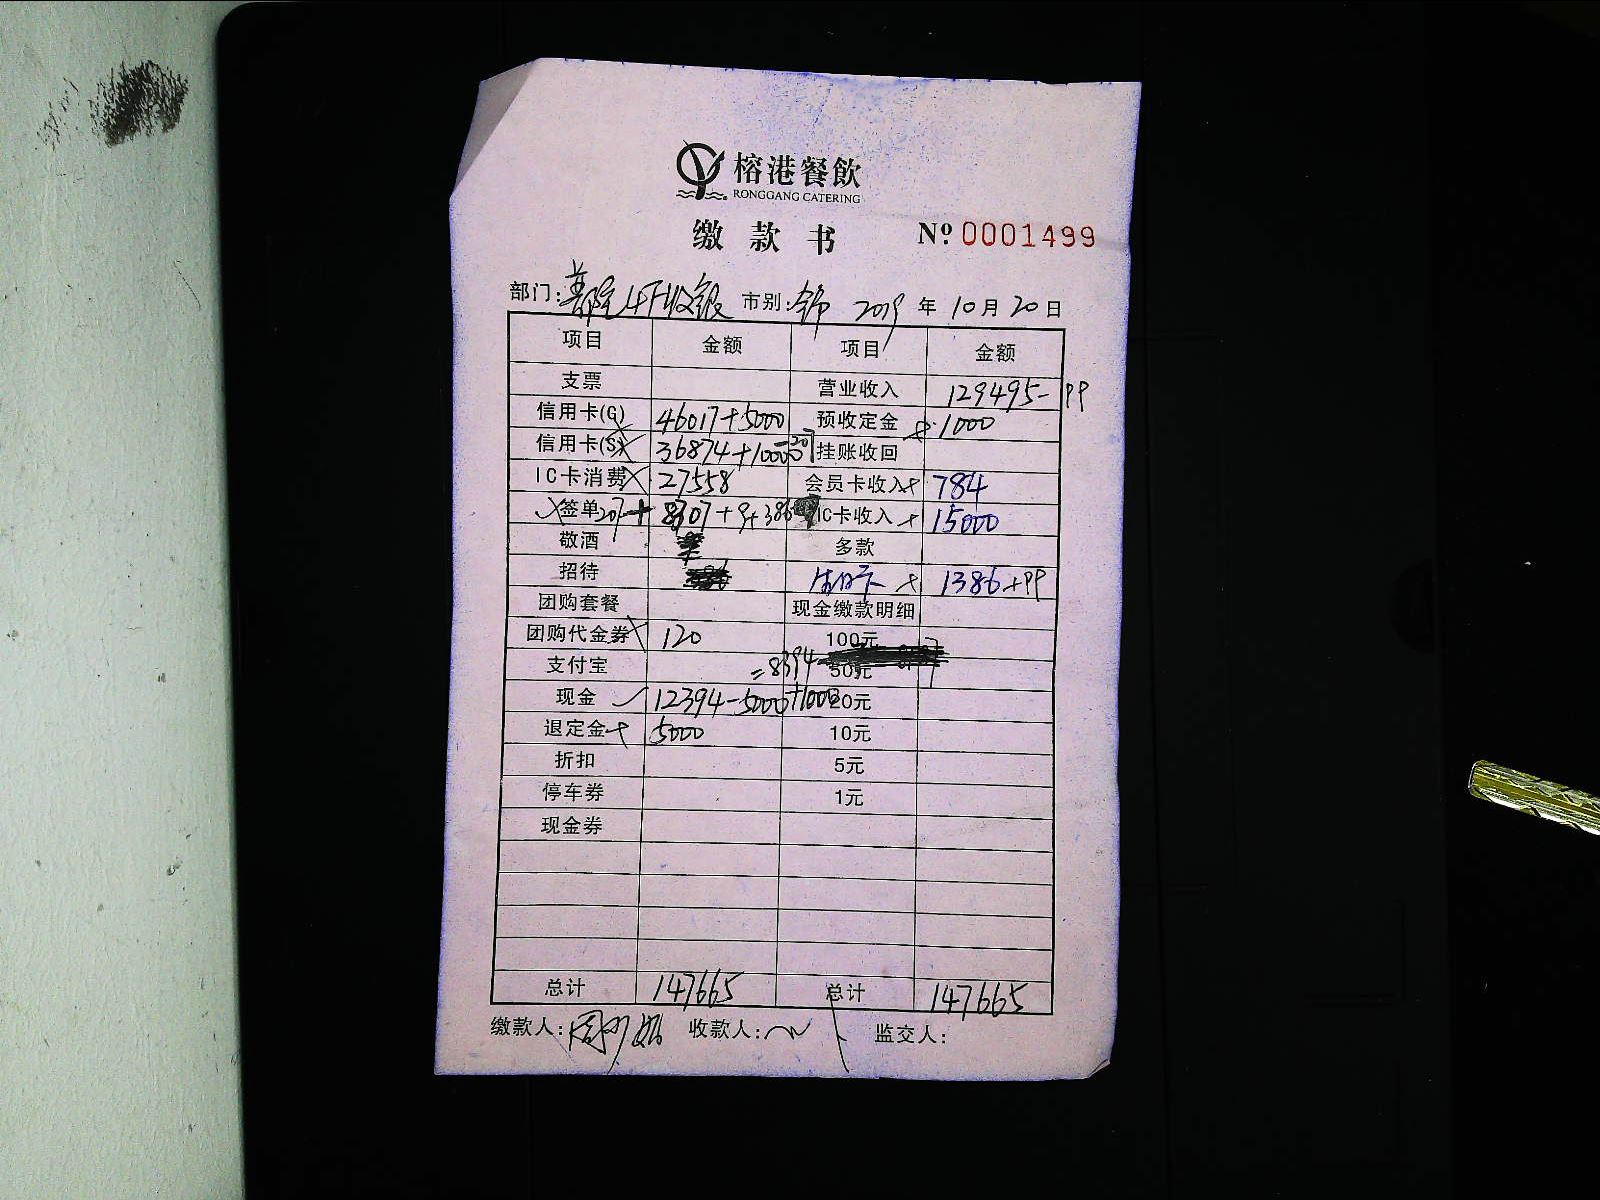 榕港餐飲
RONGGANG CATERING
缴款书 Nº 0001499
部门: 4F收银 市别: 2019 年 10 月 20 日
项目 金额 项目 金额
支票 营业收入 129495-
信用卡(G) 46017+5000 预收定金 × 1000
信用卡(S)× 36874+10000 挂账收回
IC卡消费× 27558 会员卡收入× 784
签单 207+ 8307+9+386 IC卡收入 × 15000
敬酒 多款
招待 × 1386
团购套餐 现金缴款明细
团购代金券× 120 100元
支付宝 =8394 50元
现金 ✓ 12394-5000+1000 20元
退定金× 5000 10元
折扣 5元
停车券 1元
现金券
总计 147665 总计 147665
缴款人: 收款人: 监交人: